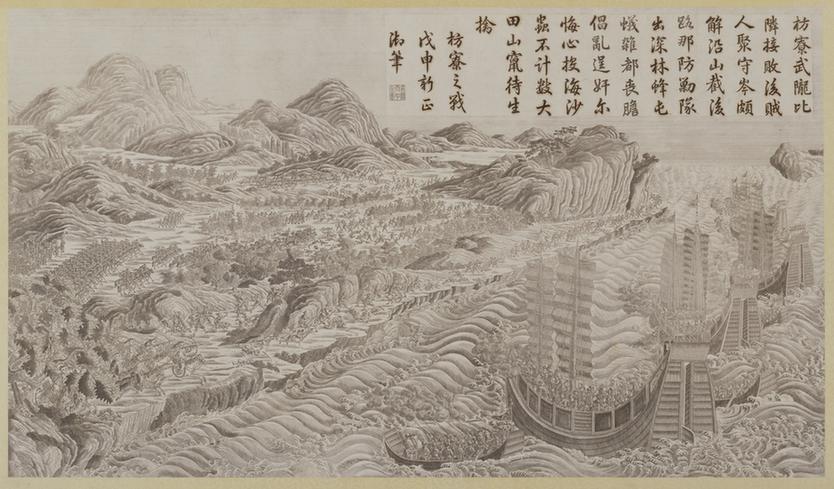 枋寮武隴比
隣接敗後賊
人聚守岑頗
解沿山截後
路那防勦隊
出深林蜂屯
蟻雜都喪膽
倡亂逞奸尔
悔心投海沙
蟲不計数大
田山窜待生
擒
枋寮之戰
戊申新正
御筆